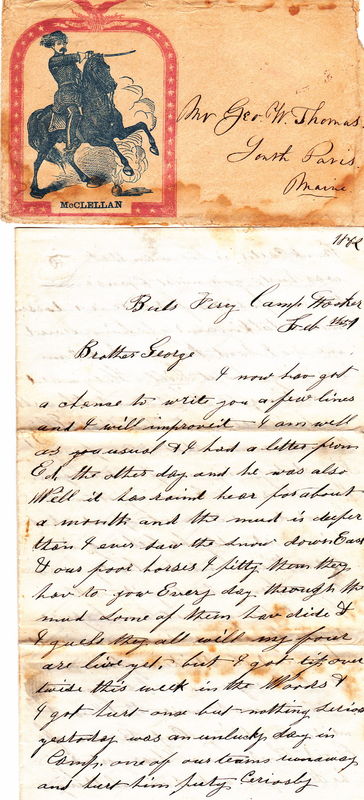 McCLELLAN
Mr Geo. W. Thomas
South Paris
Maine
1862
Buds Fery Camp Hooker
Feb
Brother George
I now hav got
a chance to write you a few lines
and I will improveit I am well
as you usual & I had a letter from
Ed, the other day and he was also
Well it has raind hear for about
a month and the mud is deeper
than I ever saw the snow down East
& our poor horses I pitty them they
hav to go Every day through the
mud some of them hav dide &
I guess they all will my four
are live yet, but I got tip over
twise this week in the Woods &
I got hurt onse but nothing serious
yestoday was an unlucky day in
Camp one of our teams runaway
and hurt him purty Ceriosly